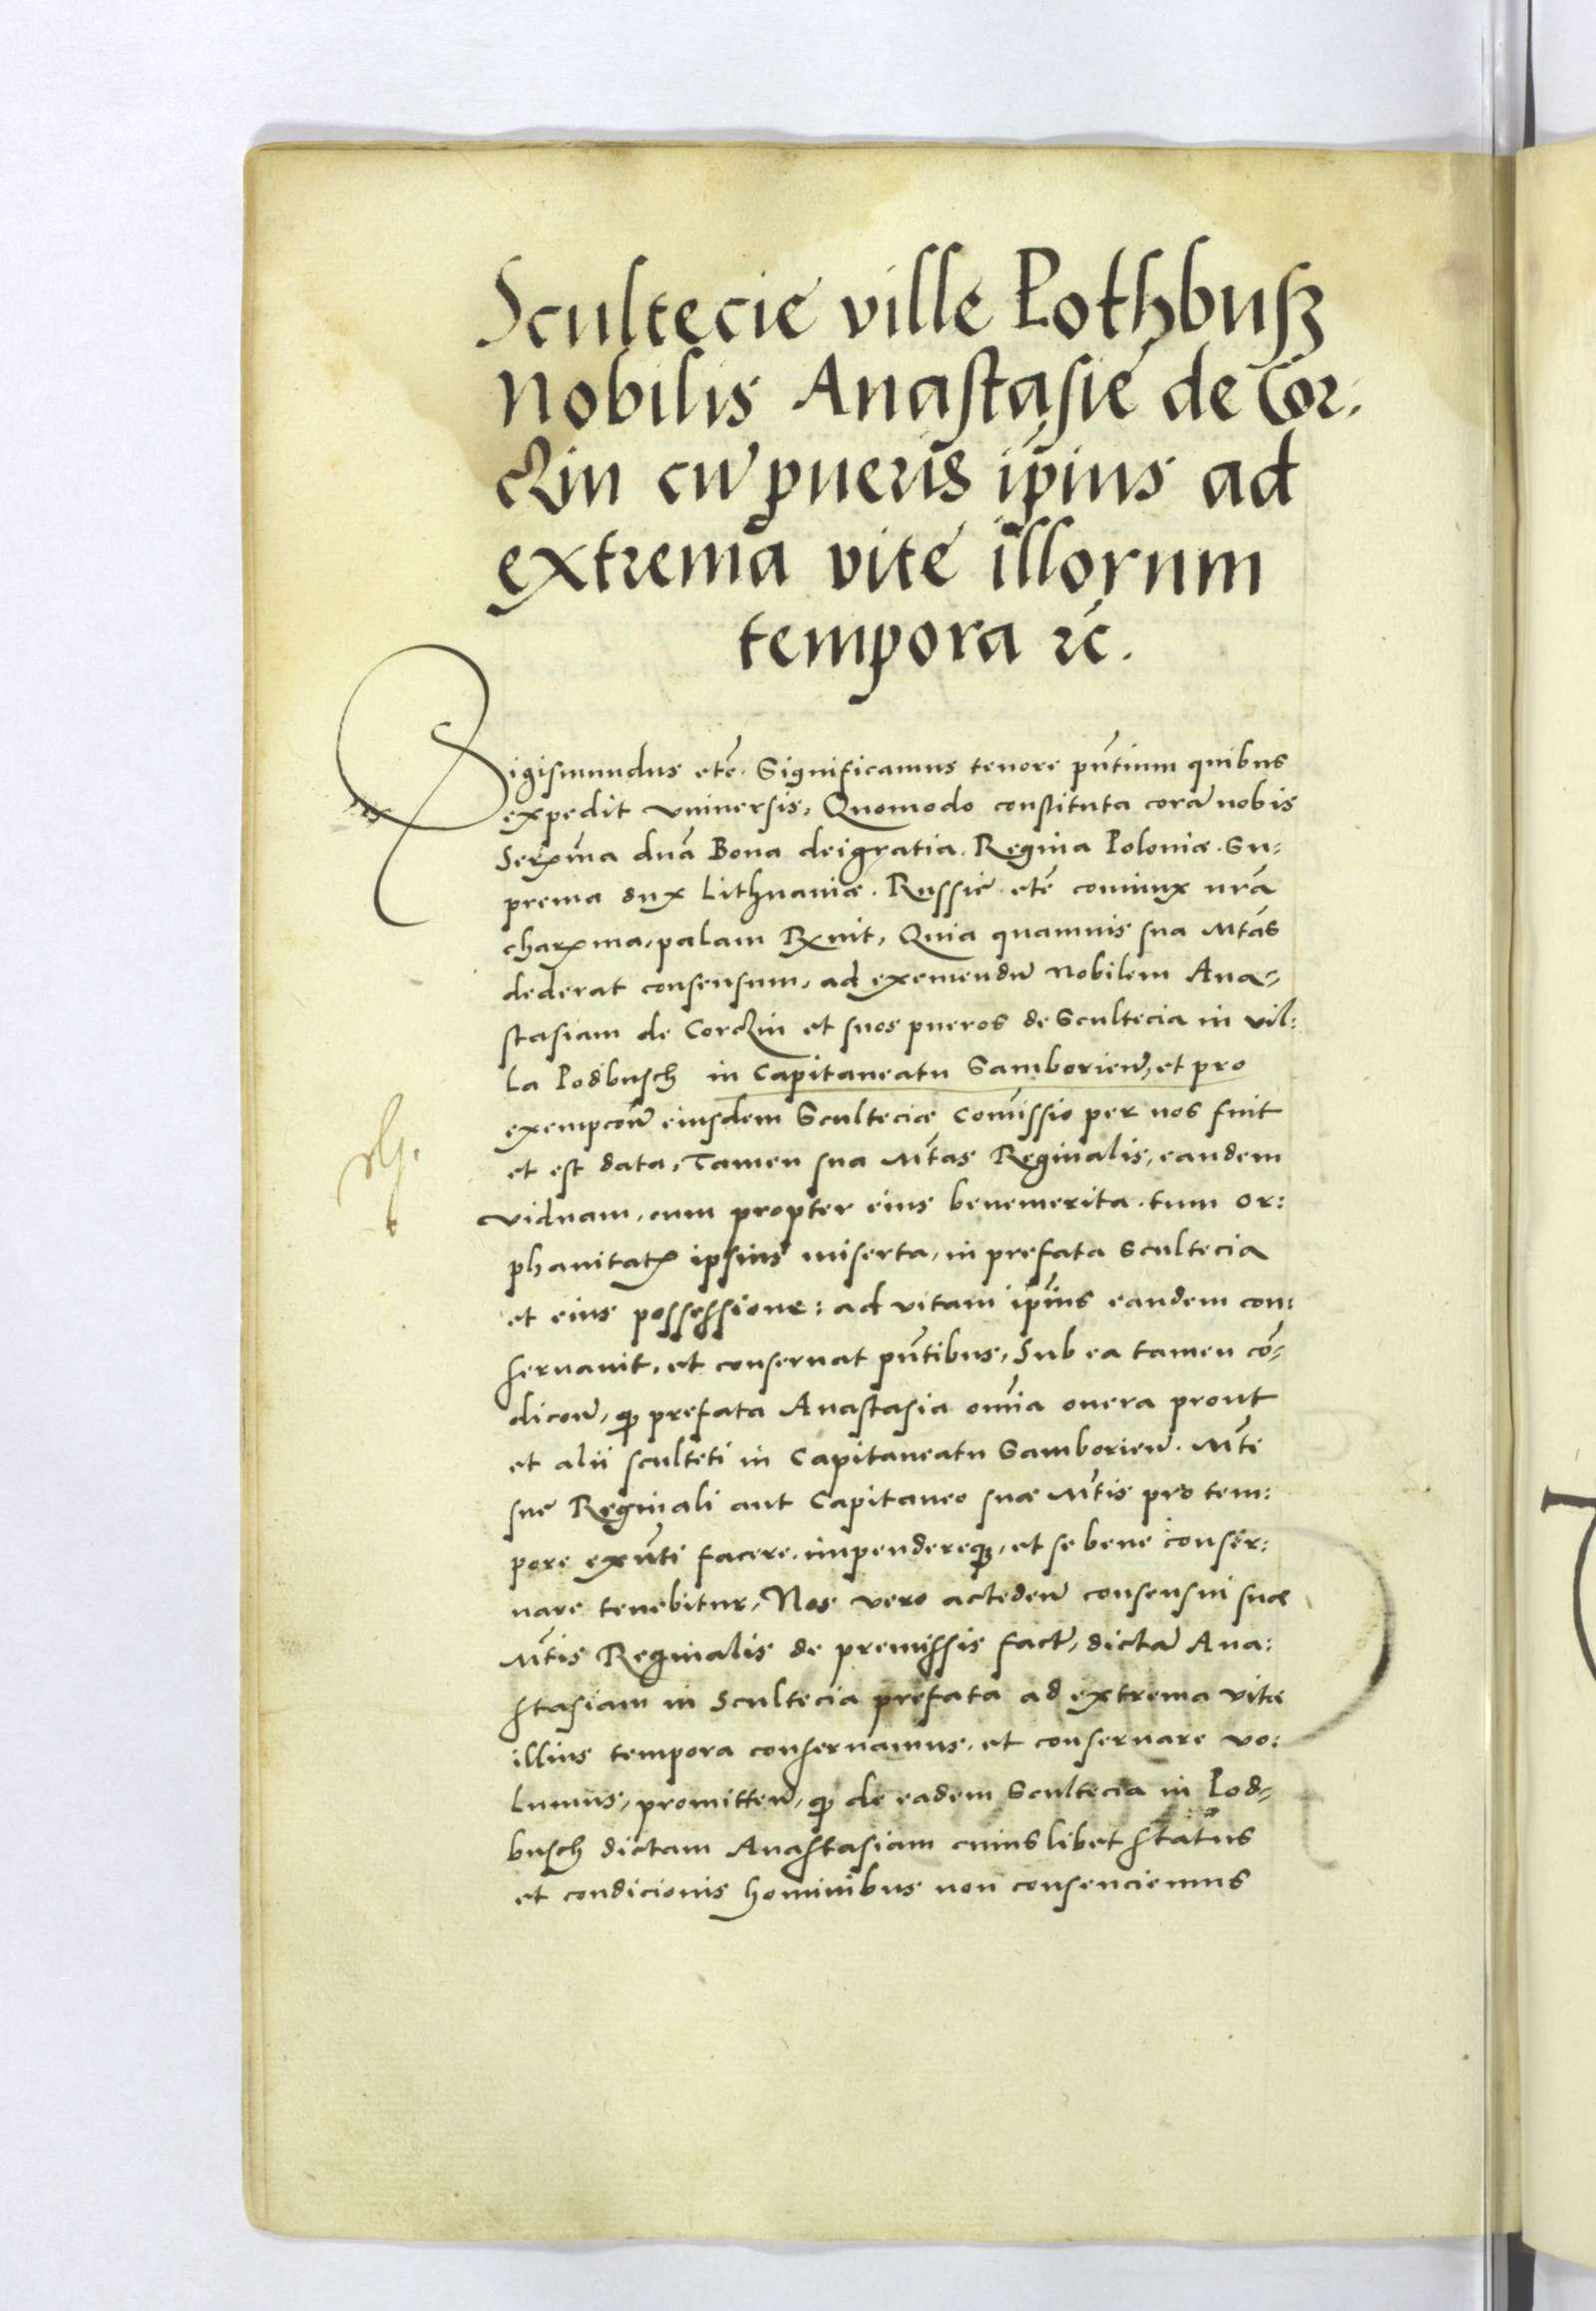 Scultecie ville Pothbusz
Nobilis Anastasie de Cor-
czin cū pueris ip̄ius ad
extrema vite illorum
tempora ⁊c̄.
Sigismundus etc̄. Significamus tenore pn̄tium quibus
expedit vniuersis, Quomodo constituta corā nobis
Serx̄ma dnā Bona deigratia. Regina Poloniæ. Su-
prema dux Lithuaniæ. Russiē etc̄ coniunx nr̄a
charx̄ma, palam Rxuit, Quia quamuis sua Mtās
dederat consensum, ad exemendū Nobilem Ana-
stasiam de Corczin et suos pueros de Scultecia in vil-
la Podbusch in Capitaneatu Samborieñ, et pro
exempcoñe eiusdem Scultecie Com̄issio per nos fuit
et est data, Tamen sua Mtās Reginalis, eandem
viduam, cum propter eius benemerita. tum or-
phanitatꝫ ipsius miserta, in prefata Scultecia
et eius possessione: ad vitam ip̄ius eandem con-
seruauit, et conseruat pn̄tibus, Sub ea tamen cō-
dicoñe, ꝙ prefata Anastasia om̄ia onera prout
et alii sculteti in Capitaneatu Samborieñ. Mt̄i
sue Reginali aut Capitaneo suæ Mt̄is pro tem-
pore exn̄ti facere, impendereqꝫ, et se bene conser-
uare tenebitur, Nos vero acceden̄ consensui suæ
Mt̄is Reginalis de premissis factꝫ, dictā Ana-
stasiam in Scultecia prefata ad extrema vitæ
illius tempora conseruamus, et conseruare vo-
lumus, promitteñ, ꝙ de eadem Scultecia in Pod-
busch dictam Anastasiam cuiuslibet status
et condicionis hominibus non consenciemus